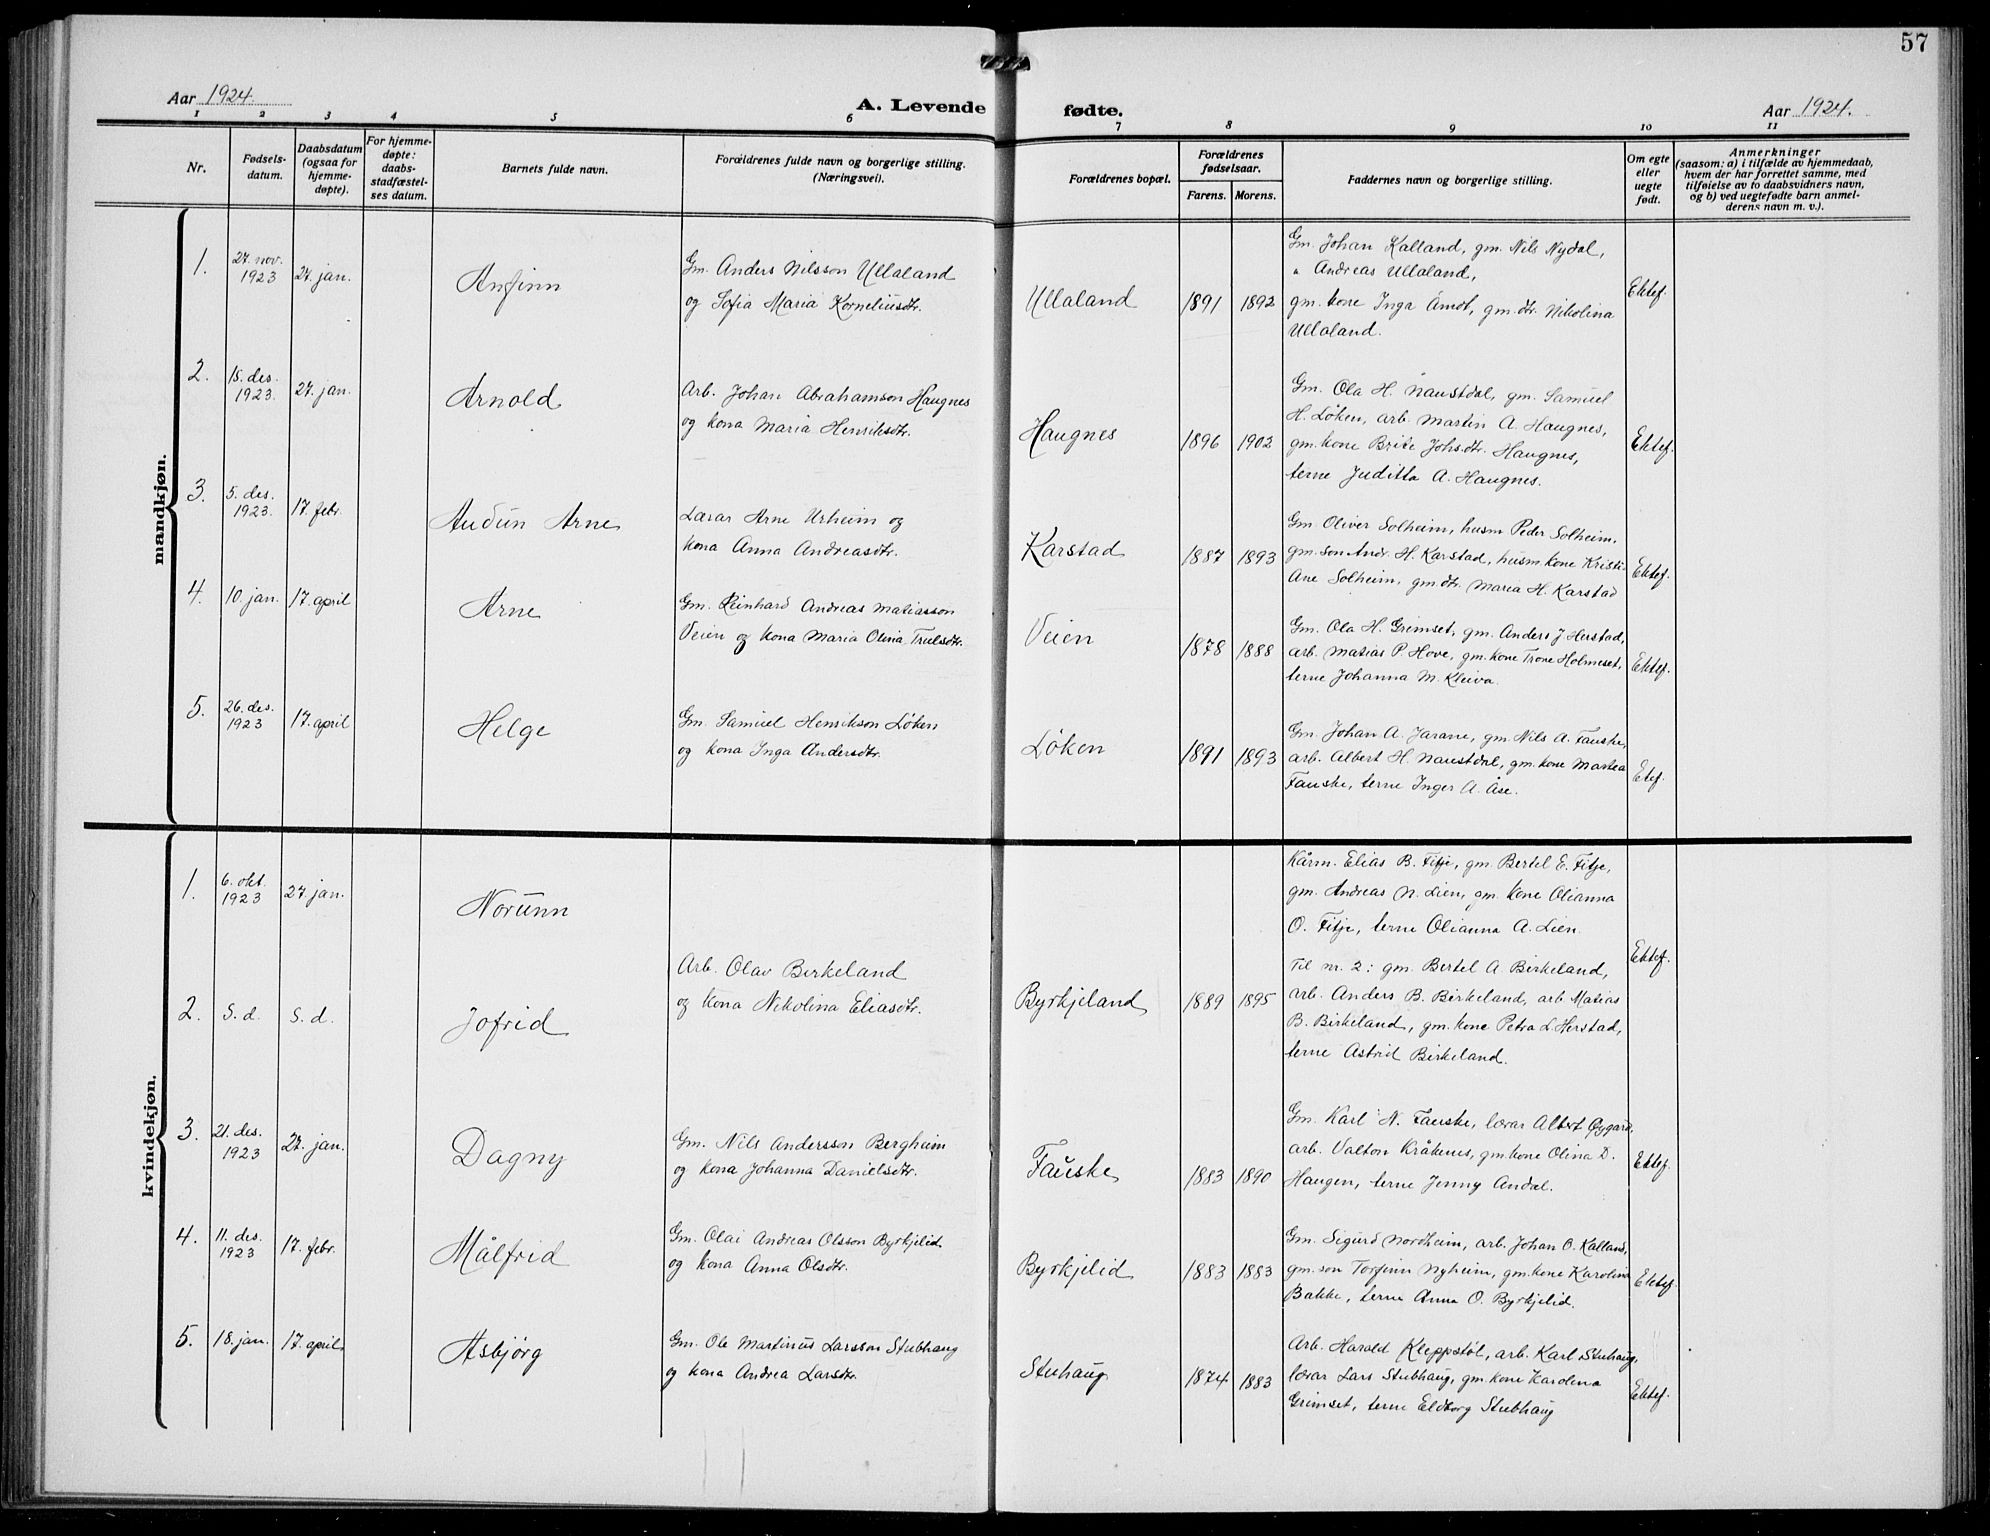 57
Aar 1924.
A. Levende fødte.
Aar 1924.
1 2 3 4 5 6 7 8 9 10 11
Nr.
Fødsels-
datum.
Daabsdatum
(ogsaa for
hjemme-
døpte).
For hjemme-
døpte:
daabs-
stadfæstel-
ses datum.
Barnets fulde navn.
Forældrenes fulde navn og borgerlige stilling.
(Næringsvei).
Forældrenes bopæl.
Forældrenes
fødselsaar.
Farens. Morens.
Faddernes navn og borgerlige stilling.
Om egte
eller
uegte
født.
Anmerkninger
(saasom: a) i tilfælde av hjemmedaab,
hvem der har forrettet samme, med
tilføielse av to daabsvidners navn,
og b) ved uegtefødte barn anmel-
derens navn m. v.).
mandkjøn.
1.
27. nov.
1923
27. jan.
Anfinn
Gm. Anders Nilsson Ullaland
og Sofia Maria Korneliusdtr.
Ullaland
1891 1892
Gm. Johan Kalland, gm. Nils Nydal,
" Andreas Ullaland,
gm. kone Inga Åmot, gm. dtr. Nikolina
Ullaland.
Ektef.
2.
15. des.
1923.
27. jan.
Arnold
Arb. Johan Abrahamson Haugnes
og kona Maria Henriksdtr.
Haugnes
1896 1902
Gm. Ola H. Naustdal, gm. Samuel
H. Løken, arb. Martin A. Haugnes,
gm. kone Brite Johsdtr. Haugnes,
terne Juditta A. Haugnes.
Ektef.
3.
5. des.
1923.
17. febr.
Audun Arne
Lærar Arne Urheim og
kona Anna Andreasdtr.
Karstad
1887 1893
Gm. Oliver Solheim, husm Peder Solheim,
gm. son Andr. H. Karstad, husm. kone Kristi-
Ane Solheim, gm. dtr. Maria H. Karstad
Ektef.
4.
10. jan.
17. april
Arne
Gm. Reinhard Andreas Matiasson
Veien og kona Maria Olina Trulsdtr.
Veien
1878 1888
Gm. Ola H. Grimset, gm. Anders J Herstad,
arb. Matias P. Hove, gm. kone Trone Holmeset,
terne Johanna M. Kleiva.
Ektef.
5.
26. des.
1923
17. april
Helge
Gm. Samuel Henrikson Løken
og kona Inga Andersdtr.
Løken
1891 1893
Gm. Johan A. Jarane, gm. Nils A. Fauske,
arb. Albert H. Naustdal, gm. kone Martea
Fauske, terne Inger A. Åse.
Etef.
kvindekjøn.
1.
6. okt.
1923
27. jan.
Norunn
Kårm. Elias B. Fitje, gm. Bertel E. Fitje,
gm. Andreas N. Lien, gm. kone Olianna
O. Fitje, terne Olianna A. Lien.
Arb. Olav Birkeland
og kona Nikolina Eliasdtr.
Byrkjeland
1889 1895
Ektef.
2.
S. d.
S. d.
Jofrid
Til nr. 2: gm. Bertel A. Birkeland,
arb. Anders B. Birkeland, arb. Matias
B. Birkeland, gm. kone Petra L. Herstad,
terne Astrid Birkeland.
3.
21. des.
1923
27. jan.
Dagny
Gm. Nils Andersson Bergheim
og kona Johanna Danielsdtr.
Fauske
1883 1890
Gm. Karl N. Fauske, lærar Albert Øygard,
arb. Valton Kråkenes, gm. kone Olina D.
Haugen, terne Jenny Andal.
Ektef.
4.
11. des.
1923
17. febr.
Målfrid
Gm. Olai Andreas Olsson Byrkjelid
og kona Anna Olsdtr.
Byrkjelid
1883 1883
Gm. Sigurd Nordheim, arb. Johan O. Kalland,
gm. son Torfinn Nyheim, gm. kone Karolina
Bakke, terne Anna O. Byrkjelid.
Ektef.
5.
18. jan.
17. april
Asbjörg
Gm. Ole Martinus Larsson Stubhaug
og kona Andrea Larsdtr.
Stuhaug
1874 1883
Arb. Harald Kleppstøl, arb. Karl Stuhaug,
lærar Lars Stubhaug, gm. kone Karolina
Grimset, terne Eldborg Stubhaug
Ektef.